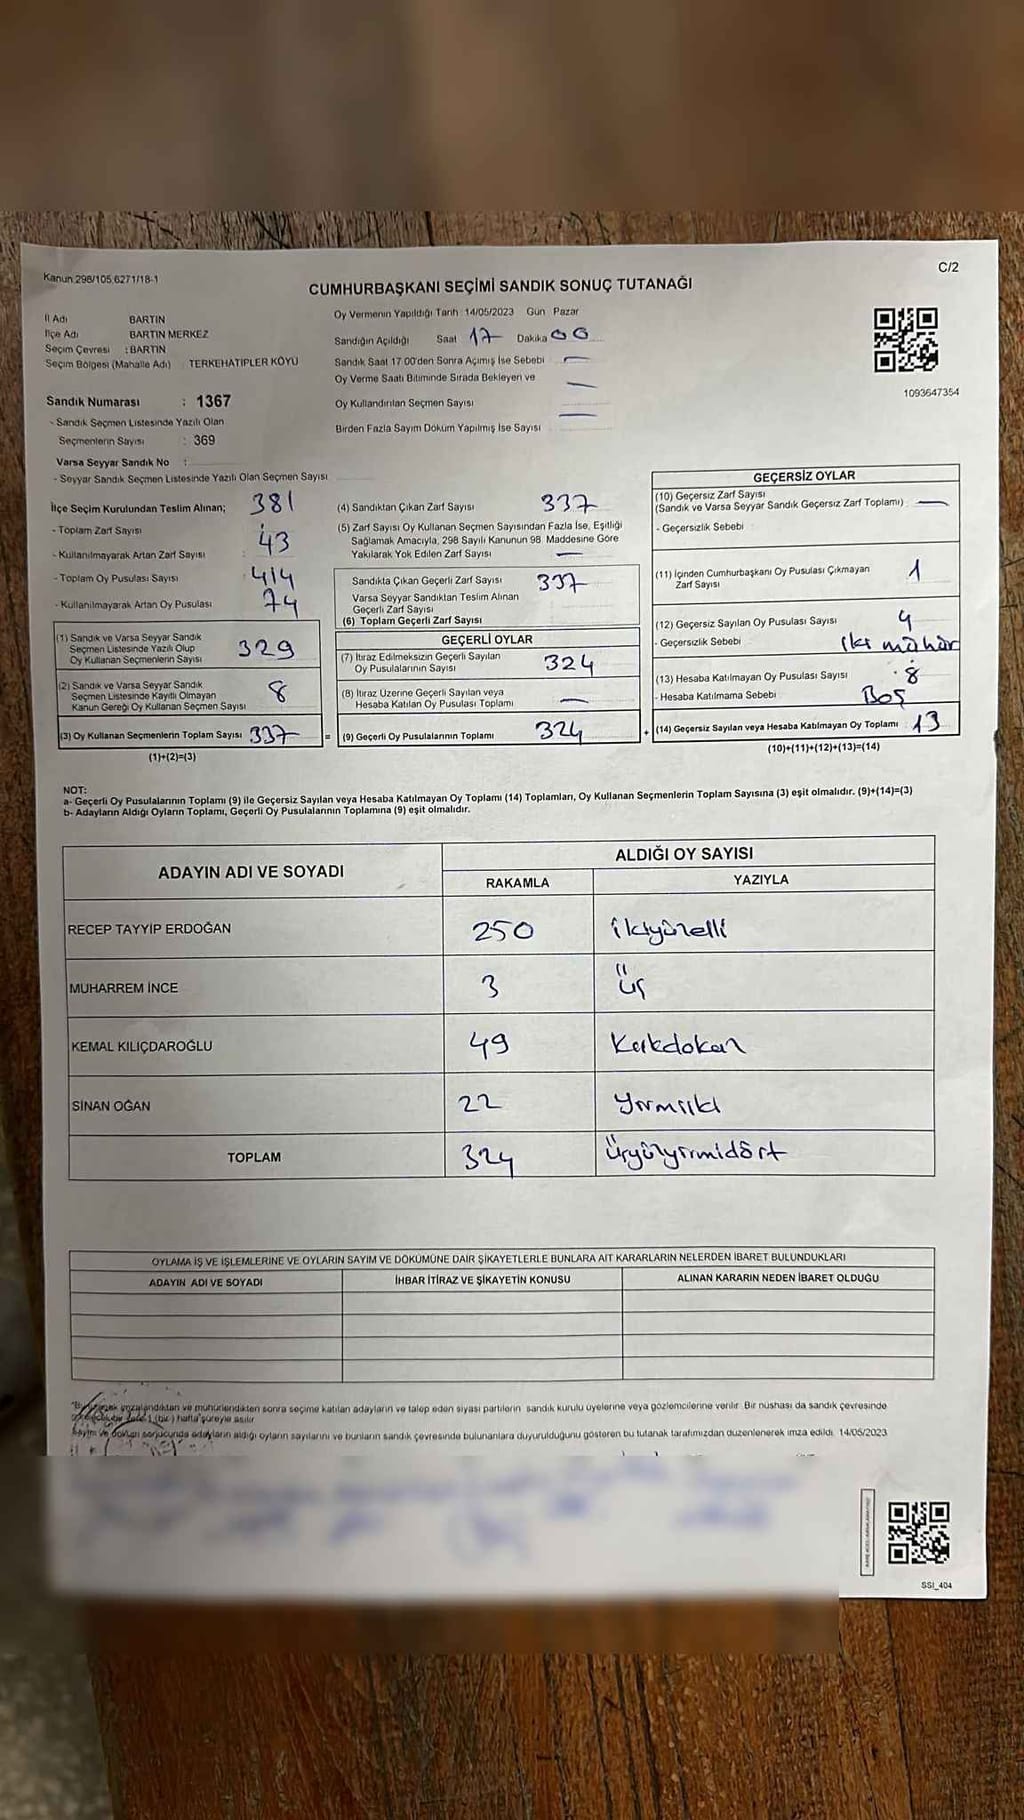 Kanun 298/105,6271/18-1
C/2
CUMHURBAŞKANI SEÇİMİ SANDIK SONUÇ TUTANAĞI
İl Adı BARTIN
İlçe Adı BARTIN MERKEZ
Seçim Çevresi : BARTIN
Seçim Bölgesi (Mahalle Adı) : TERKEHATİPLER KÖYÜ
Sandık Numarası : 1367
- Sandık Seçmen Listesinde Yazılı Olan
Seçmenlerin Sayısı : 369
Varsa Seyyar Sandık No :
- Seyyar Sandık Seçmen Listesinde Yazılı Olan Seçmen Sayısı
Oy Vermenin Yapıldığı Tarih 14/05/2023 Gün Pazar
Sandığın Açıldığı Saat 17 Dakika 00
Sandık Saat 17.00'den Sonra Açımış İse Sebebi —
Oy Verme Saati Bitiminde Sırada Bekleyen ve —
Oy Kullandırılan Seçmen Sayısı —
Birden Fazla Sayım Döküm Yapılmış İse Sayısı
1093647354
İlçe Seçim Kurulundan Teslim Alınan; 381
- Toplam Zarf Sayısı :
- Kullanılmayarak Artan Zarf Sayısı : 43
- Toplam Oy Pusulası Sayısı : 414
- Kullanılmayarak Artan Oy Pusulası 74
(1) Sandık ve Varsa Seyyar Sandık
Seçmen Listesinde Yazılı Olup
Oy Kullanan Seçmenlerin Sayısı 329
(2) Sandık ve Varsa Seyyar Sandık
Seçmen Listesinde Kayıtlı Olmayan
Kanun Gereği Oy Kullanan Seçmen Sayısı 8
(3) Oy Kullanan Seçmenlerin Toplam Sayısı 337
(1)+(2)=(3)
(4) Sandıktan Çıkan Zarf Sayısı 337
(5) Zarf Sayısı Oy Kullanan Seçmen Sayısından Fazla İse, Eşitliği
Sağlamak Amacıyla, 298 Sayılı Kanunun 98. Maddesine Göre
Yakılarak Yok Edilen Zarf Sayısı —
Sandıkta Çıkan Geçerli Zarf Sayısı 337
Varsa Seyyar Sandıktan Teslim Alınan
Geçerli Zarf Sayısı
(6) Toplam Geçerli Zarf Sayısı
GEÇERLİ OYLAR
(7) İtiraz Edilmeksizin Geçerli Sayılan
Oy Pusulalarının Sayısı 324
(8) İtiraz Üzerine Geçerli Sayılan veya
Hesaba Katılan Oy Pusulası Toplamı —
= (9) Geçerli Oy Pusulalarının Toplamı 324
GEÇERSİZ OYLAR
(10) Geçersiz Zarf Sayısı
(Sandık ve Varsa Seyyar Sandık Geçersiz Zarf Toplamı) —
- Geçersizlik Sebebi
(11) İçinden Cumhurbaşkanı Oy Pusulası Çıkmayan
Zarf Sayısı 1
(12) Geçersiz Sayılan Oy Pusulası Sayısı 4
- Geçersizlik Sebebi iki mühür
(13) Hesaba Katılmayan Oy Pusulası Sayısı : 8
- Hesaba Katılmama Sebebi Boş
+ (14) Geçersiz Sayılan veya Hesaba Katılmayan Oy Toplamı : 13
(10)+(11)+(12)+(13)=(14)
NOT:
a- Geçerli Oy Pusulalarının Toplamı (9) ile Geçersiz Sayılan veya Hesaba Katılmayan Oy Toplamı (14) Toplamları, Oy Kullanan Seçmenlerin Toplam Sayısına (3) eşit olmalıdır. (9)+(14)=(3)
b- Adayların Aldığı Oyların Toplamı, Geçerli Oy Pusulalarının Toplamına (9) eşit olmalıdır.
ADAYIN ADI VE SOYADI ALDIĞI OY SAYISI
RAKAMLA YAZIYLA
RECEP TAYYİP ERDOĞAN 250 ikiyüzelli
MUHARREM İNCE 3 üç
KEMAL KILIÇDAROĞLU 49 Kırkdokuz
SİNAN OĞAN 22 Yirmiiki
TOPLAM 324 Üçyüzyirmidört
OYLAMA İŞ VE İŞLEMLERİNE VE OYLARIN SAYIM VE DÖKÜMÜNE DAİR ŞİKAYETLERLE BUNLARA AİT KARARLARIN NELERDEN İBARET BULUNDUKLARI
ADAYIN ADI VE SOYADI İHBAR İTİRAZ VE ŞİKAYETİN KONUSU ALINAN KARARIN NEDEN İBARET OLDUĞU
imzalandıktan ve mühürlendikten sonra seçime katılan adayların ve talep eden siyasi partilerin sandık kurulu üyelerine veya gözlemcilerine verilir. Bir nüshası da sandık çevresinde
1 (bir) hafta süreyle asılır
Sayım ve döküm sonucunda adayların aldığı oyların sayılarını ve bunların sandık çevresinde bulunanlara duyurulduğunu gösteren bu tutanak tarafımızdan düzenlenerek imza edildi. 14/05/2023
SSI_404